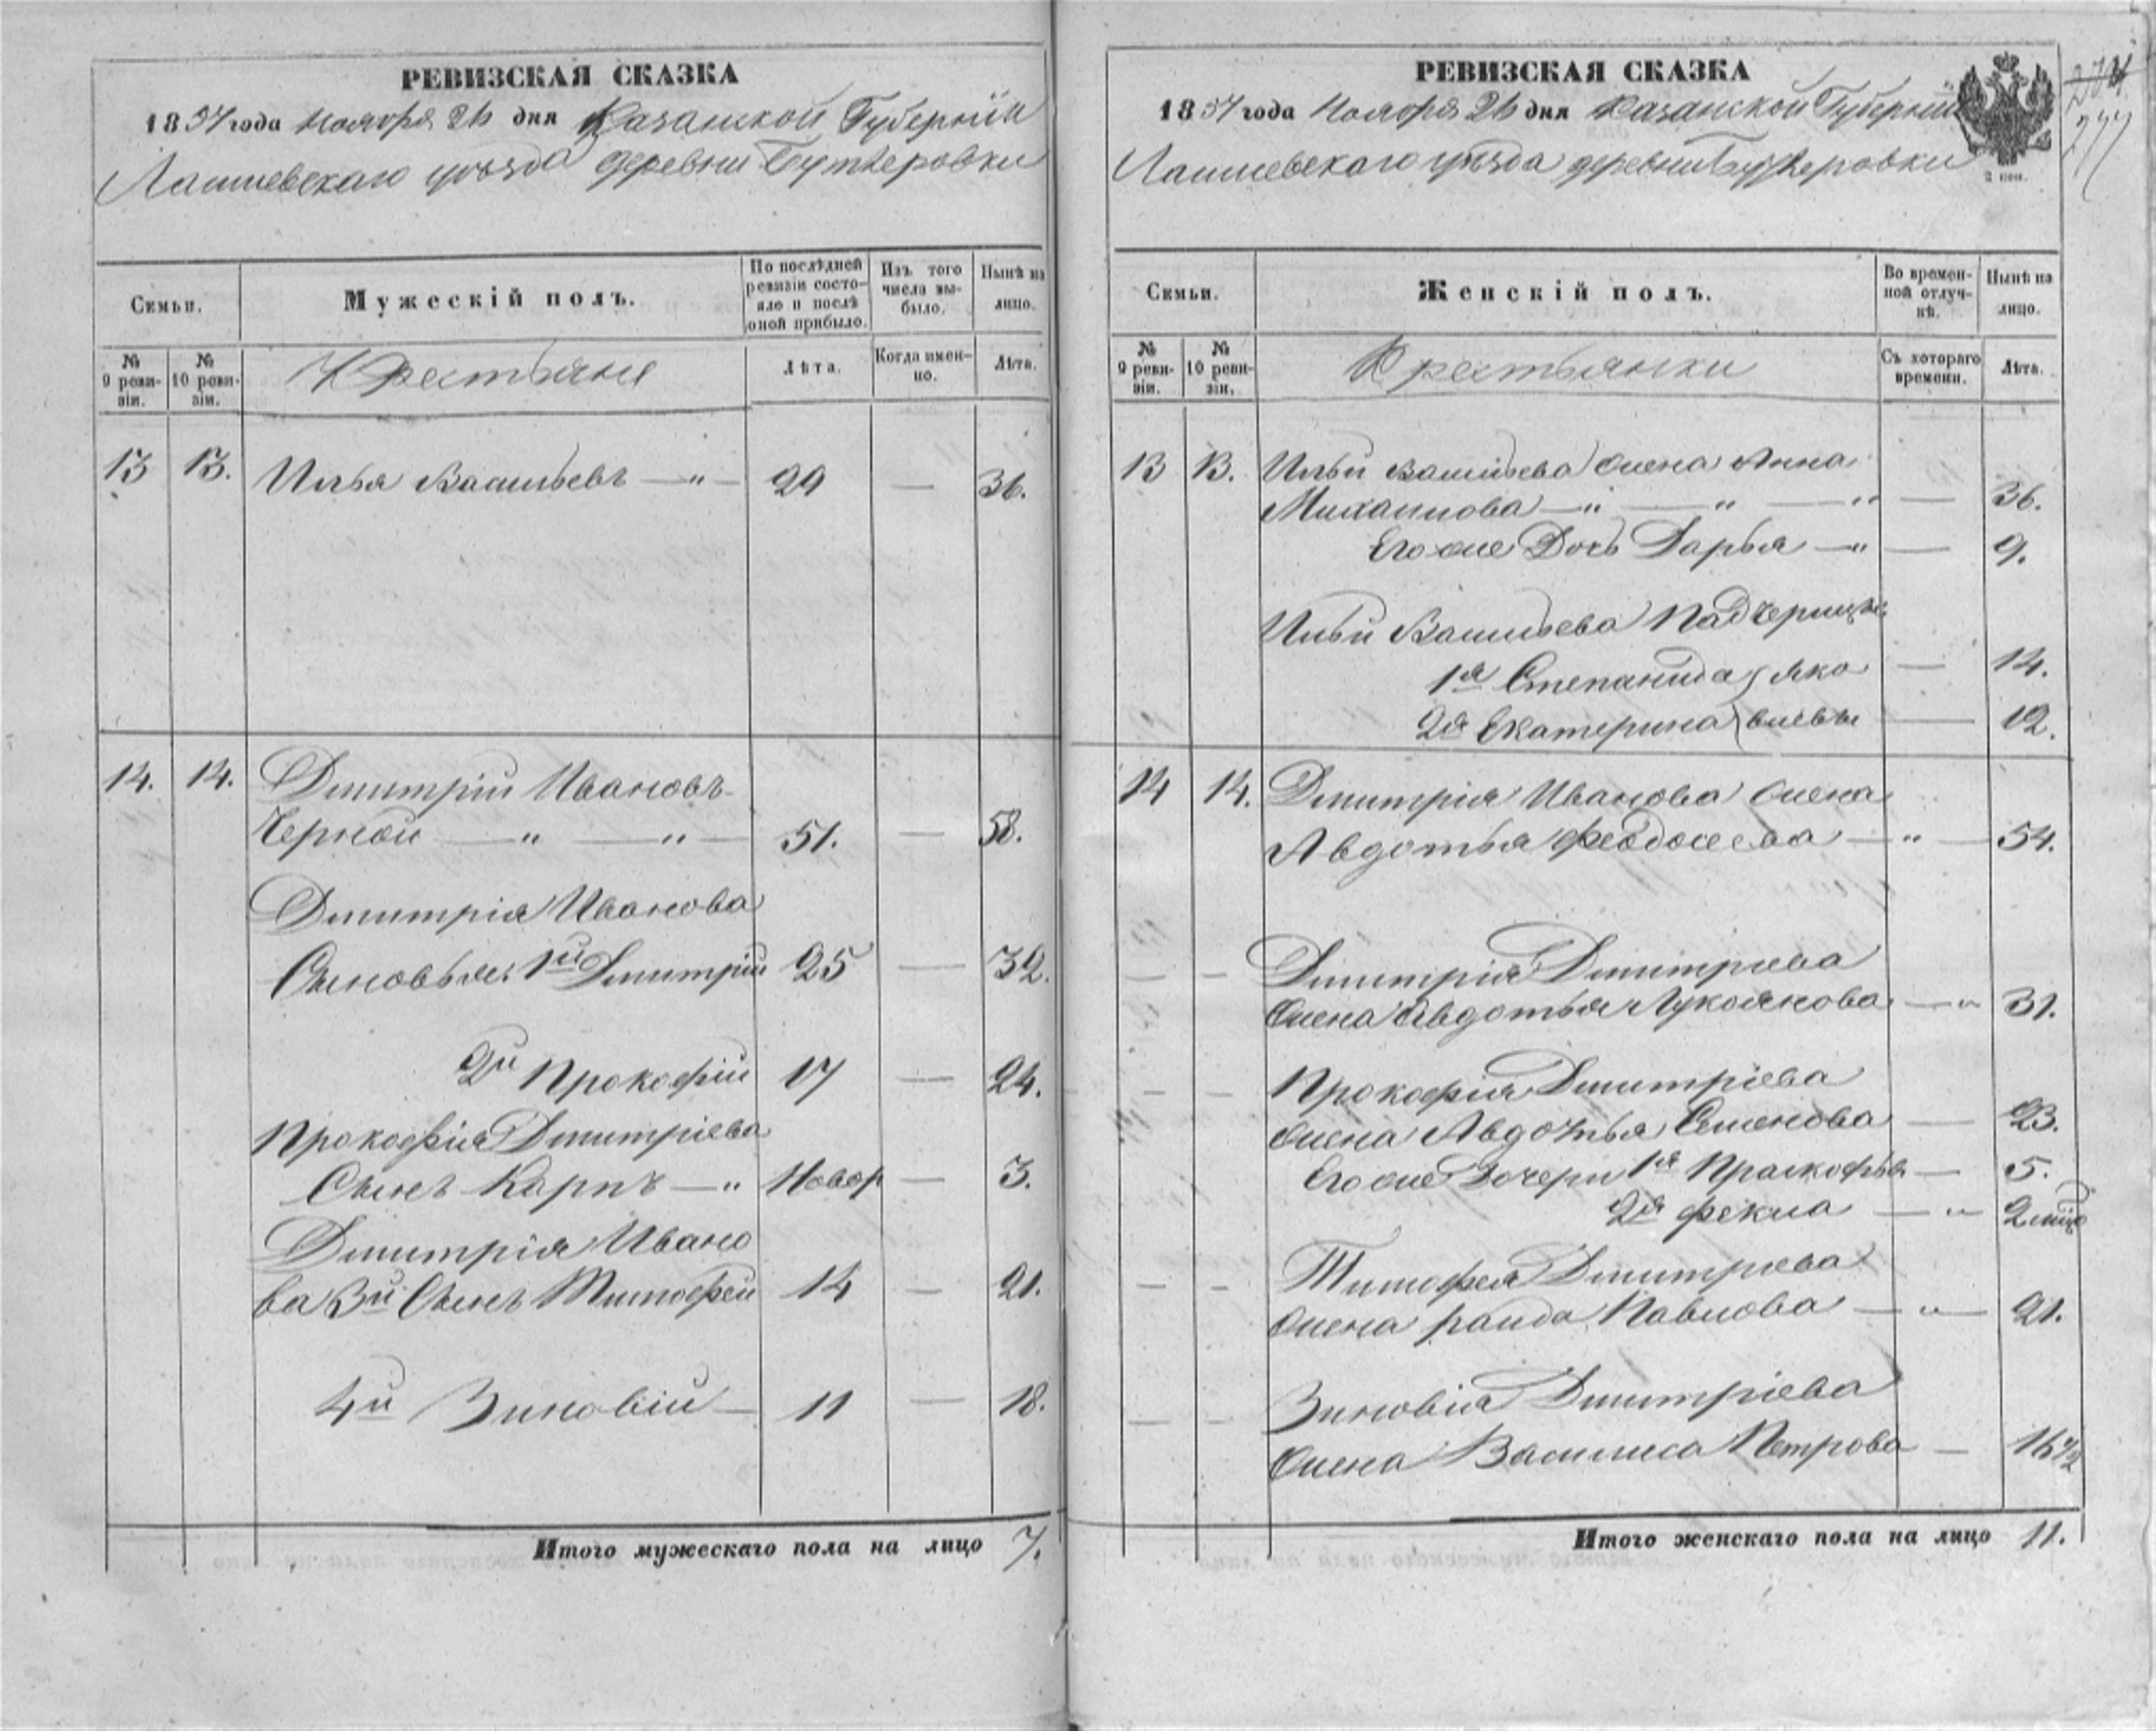 РЕВИЗСКАЯ СКАЗКА
1857 года Ноября 26 дня Казанской Губернии
Лаишевскаго уѣзда деревни Бутлеровки
Семьи.
Мужескій полъ.
По послѣдней ревизіи состояло и послѣ оной прибыло.
Изъ того числа выбыло.
Нынѣ на лицо.
№ 9 ревизіи.
№ 10 ревизіи.
Крестьяне
Лѣта.
Когда именно.
Лѣта.
13 13. Илья Васильевъ — " — 29 — 36.
14. 14. Дмитрій Ивановъ
Черной — " — " — 51. — 58.
Дмитрія Иванова
Сыновья: 1й Дмитрій 25 — 32.
2й Прокофій 17 — 24.
Прокофія Дмитріева
Сынъ Карпъ — " Новор — 3.
Дмитрія Ивано
ва 3й Сынъ Тимофей 14 — 21.
4й Зиновій — 11 — 18.
Итого мужескаго пола на лицо 7.
РЕВИЗСКАЯ СКАЗКА
1857 года Ноября 26 дня Казанской Губерніи
Лаишевскаго уѣзда деревни Бутлеровки
2 коп.
277
Семьи.
Женскій полъ.
Во временной отлучкѣ.
Нынѣ на лицо.
№ 9 ревизіи.
№ 10 ревизіи.
Крестьянки
Съ котораго времени.
Лѣта.
13 13. Ильи Васильева жена Анна
Михаилова — " — " — " — 36.
Его же Дочь Дарья — " — 9.
Ильи Васильева Падчерицы
1я Степанида } Яко — 14.
2я Екатерина } влевы — 12.
14 14. Дмитрія Иванова жена
Авдотья Феодосеева — " — 54.
— — Дмитрія Дмитріева
жена Авдотья Лукоянова — " 31.
— — Прокофія Дмитріева
жена Авдотья Семенова — 23.
Его же Дочери 1я Прасковья — 5.
2я Фекла — " 2 мѣс
— — Тимофея Дмитріева
жена Раида Павлова — " — 21.
— — Зиновія Дмитріева
жена Василиса Петрова — 16 1/2
Итого женскаго пола на лицо 11.